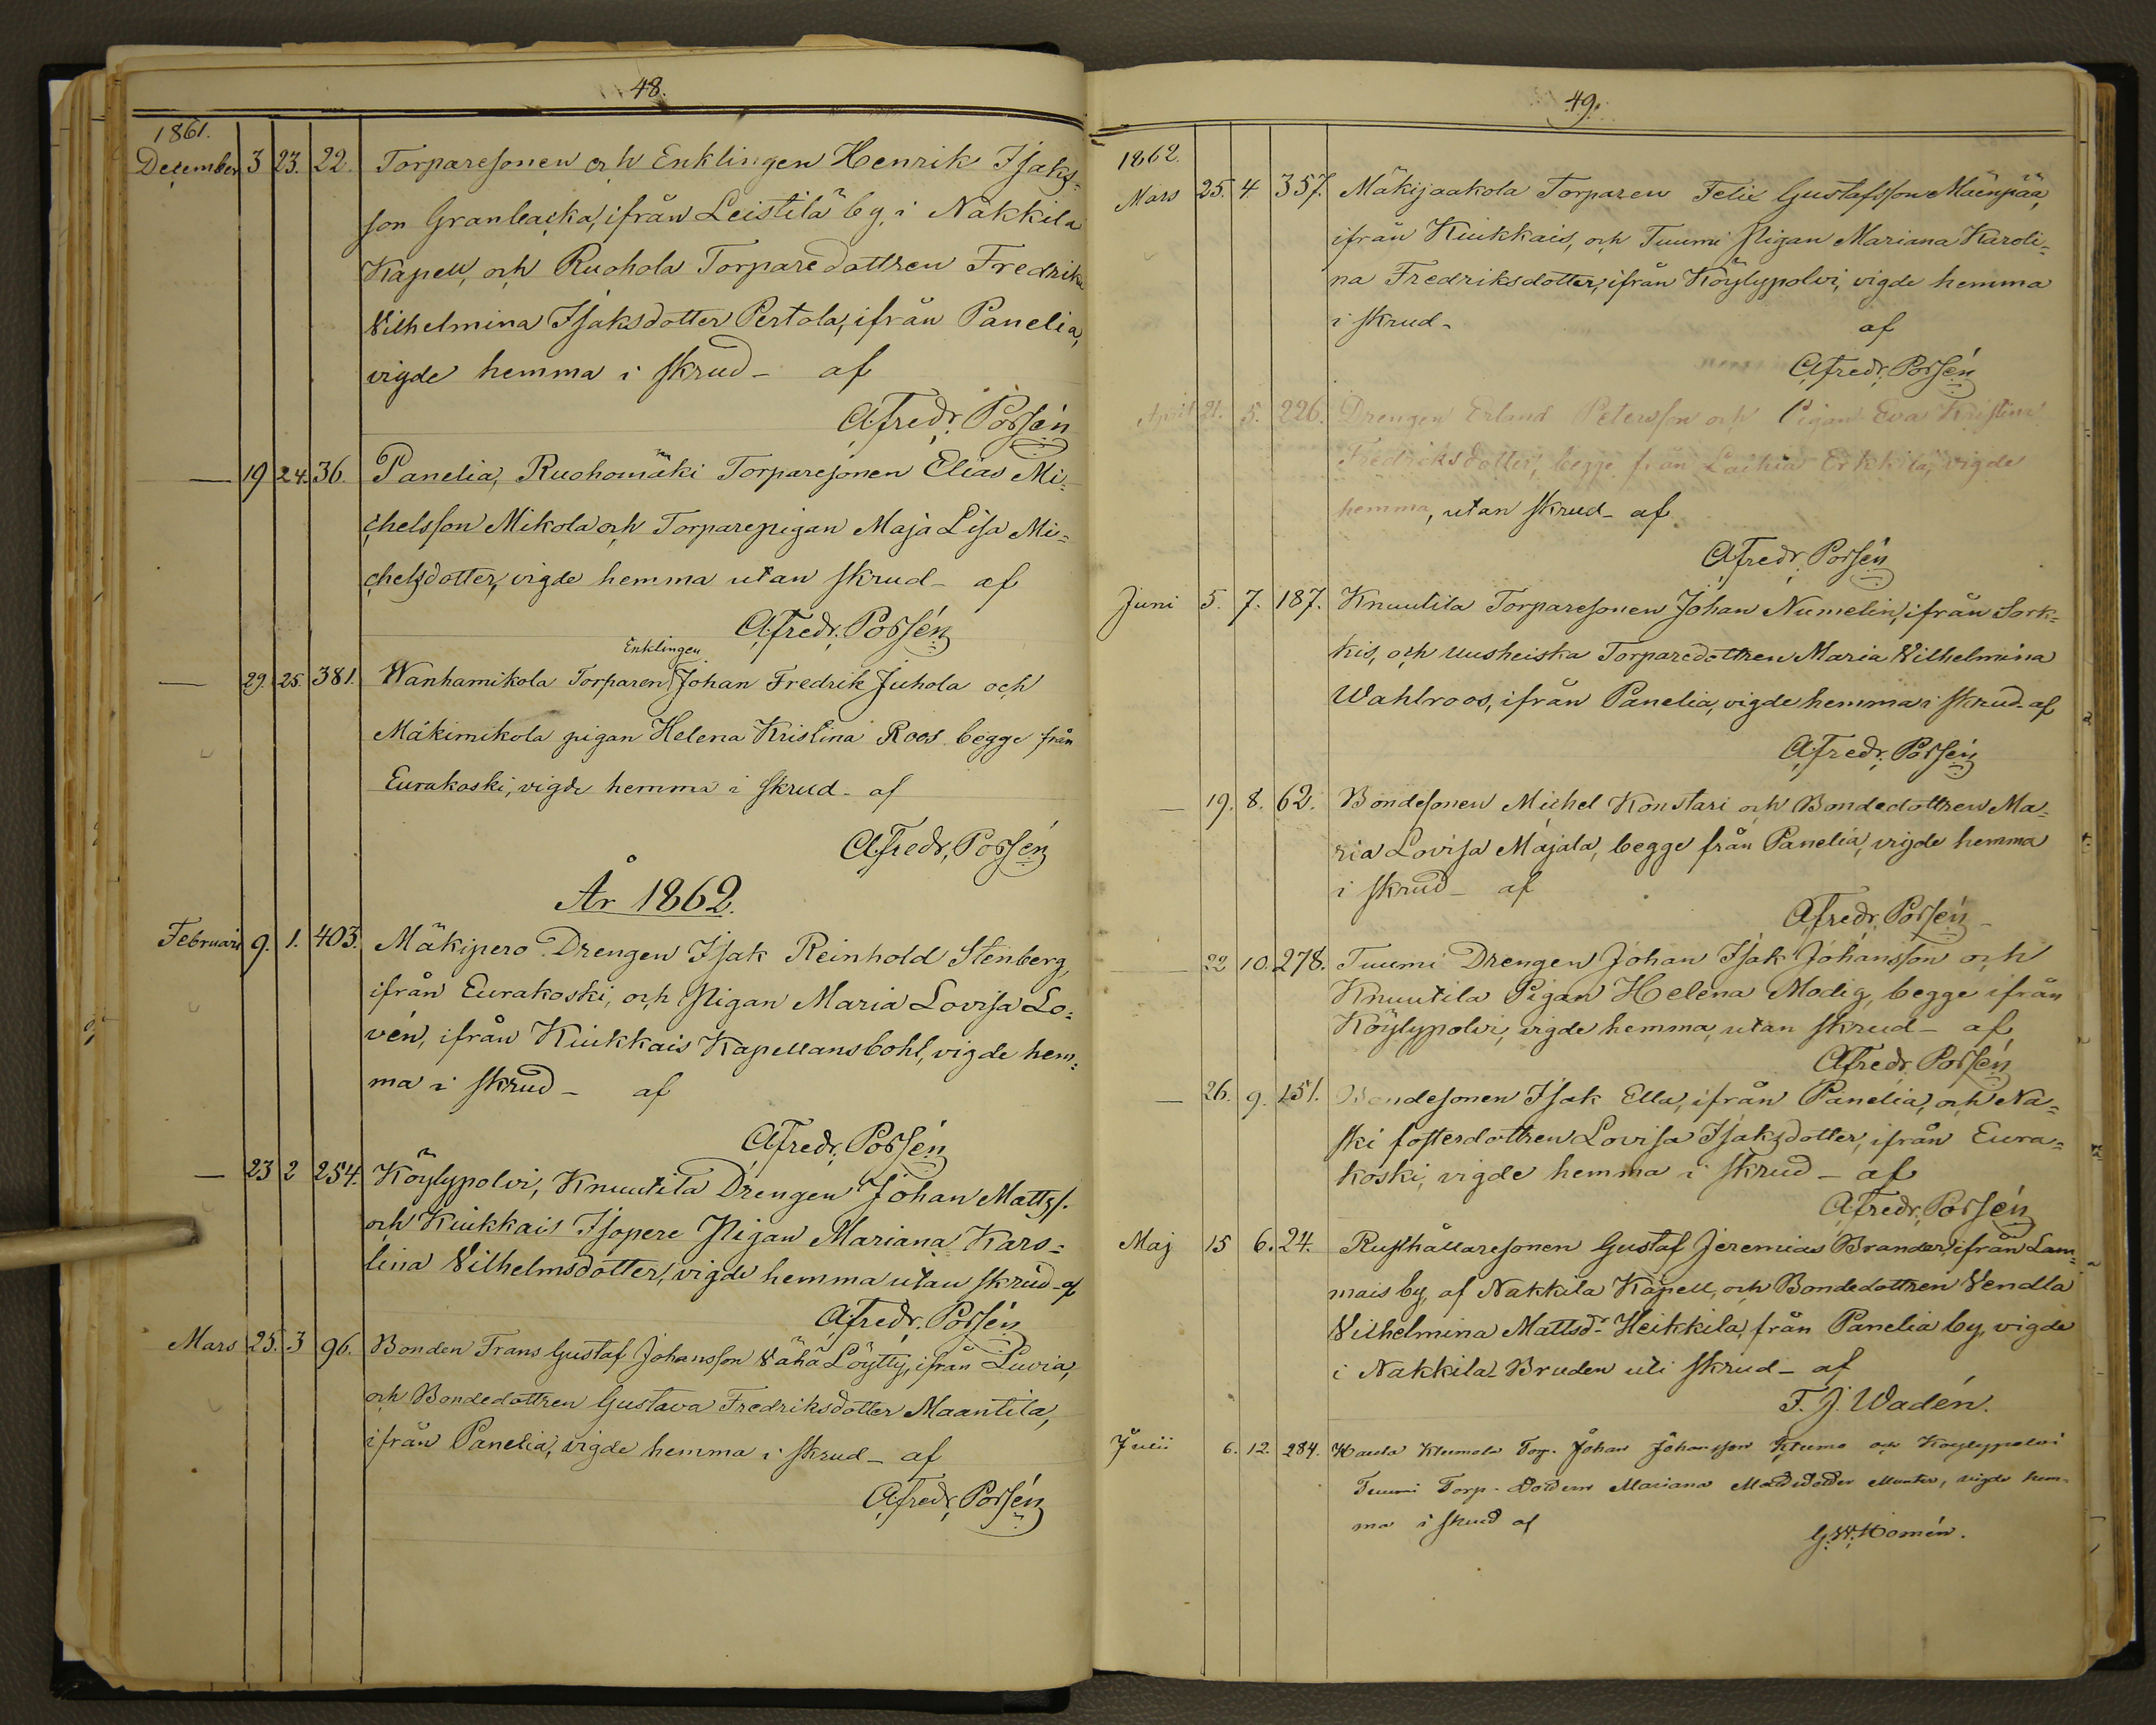 48.
1861.
December 3 23. 22. Torparesonen och Enklingen Henrik Isaks-
son Granbacka, ifrån Leistilä by, i Nakkila
Kapell, och Ruohola Torparedottren Fredrika
Vilhelmina Isaksdotter Pertola, ifrån Panelia,
vigde hemma i skrud - af
A. Fredr. Porsén
— 19 24. 36. Panelia, Ruohomäki Torparesonen Elias Mi-
chelsson Mikola och Torparepigan Maja Lisa Mi-
chelsdotter, vigde hemma utan skrud - af
A. Fredr. Porsén
Enklingen
— 29. 25. 381. Wanhamikola Torparen Johan Fredrik Juhola och
Mäkimikola pigan Helena Kristina Roos begge från
Eurakoski, vigde hemma i skrud - af
A. Fredr. Porsén
År 1862.
Februari 9. 1. 403. Mäkipero Drengen Isak Reinhold Stenberg,
ifrån Eurakoski, och Pigan Maria Lovisa Lo-
vén, ifrån Kiukkais Kapellansbohl, vigde hem-
ma i skrud - af
A. Fredr. Porsén
— 23 2 254. Köylypolvi, Knuutila Drengen Johan Mattss.
och Kiukkais Isopere Pigan Mariana Karo-
lina Vilhelmsdotter, vigde hemma utan skrud - af
A. Fredr. Porsén
Mars 25. 3 96. Bonden Frans Gustaf Johansson Vähä Löytty, ifrån Luvia,
och Bondedottren Gustava Fredriksdotter Maantila,
ifrån Panelia, vigde hemma i skrud - af
A. Fredr. Porsén
49.
1862.
Mars 25. 4. 357. Mäkijaakola Torparen Felix Gustafsson Mäenpää,
ifrån Kiukkais, och Tuumi Pigan Mariana Karoli-
na Fredriksdotter, ifrån Köylypolvi, vigde hemma
i skrud - af
A. Fredr. Porsén
April 21. 5. 226. Drengen Erland Petersson och Pigan Eva Kristina
Fredriksdotter, begge från Laihia Erkkila, vigde
hemma, utan skrud - af
A. Fredr. Porsén
Juni 5. 7. 187. Knuutila Torparesonen Johan Numelin, ifrån Sork-
kis, och Uusheiska Torparedottren Maria Vilhelmina
Wahlroos, ifrån Panelia, vigde hemma i skrud - af
A. Fredr. Porsén
— 19. 8. 62. Bondesonen Michel Konstari och Bondedottren Ma-
ria Lovisa Majala, begge från Panelia, vigde hemma
i skrud - af
A. Fredr. Porsén
— 22 10. 278. Tuumi Drengen Johan Isak Johansson och
Knuutila Pigan Helena Modig, begge ifrån
Köylypolvi, vigde hemma, utan skrud - af
A. Fredr. Porsén
— 26. 9. 151. Bondesonen Isak Ella, ifrån Panelia, och Na-
ski fosterdottren Lovisa Isaksdotter, ifrån Eura-
koski, vigde hemma i skrud - af
A. Fredr. Porsén
Maj 15 6. 24. Rusthållaresonen Gustaf Jeremias Brander, ifrån Lam-
mais by, af Nakkila Kapell, och Bondedottren Vendla
Vilhelmina Mattsdr. Heikkila, från Panelia by, vigde
i Nakkila Bruden uti skrud - af
F. J. Wadén.
Julii 6. 12. 284. Klumola Torp. Johan Johansson Klumo och Köylypolvi
Tuumi Torp. Dottern Mariana vigde hem-
ma i skrud af
G. W. Homén.